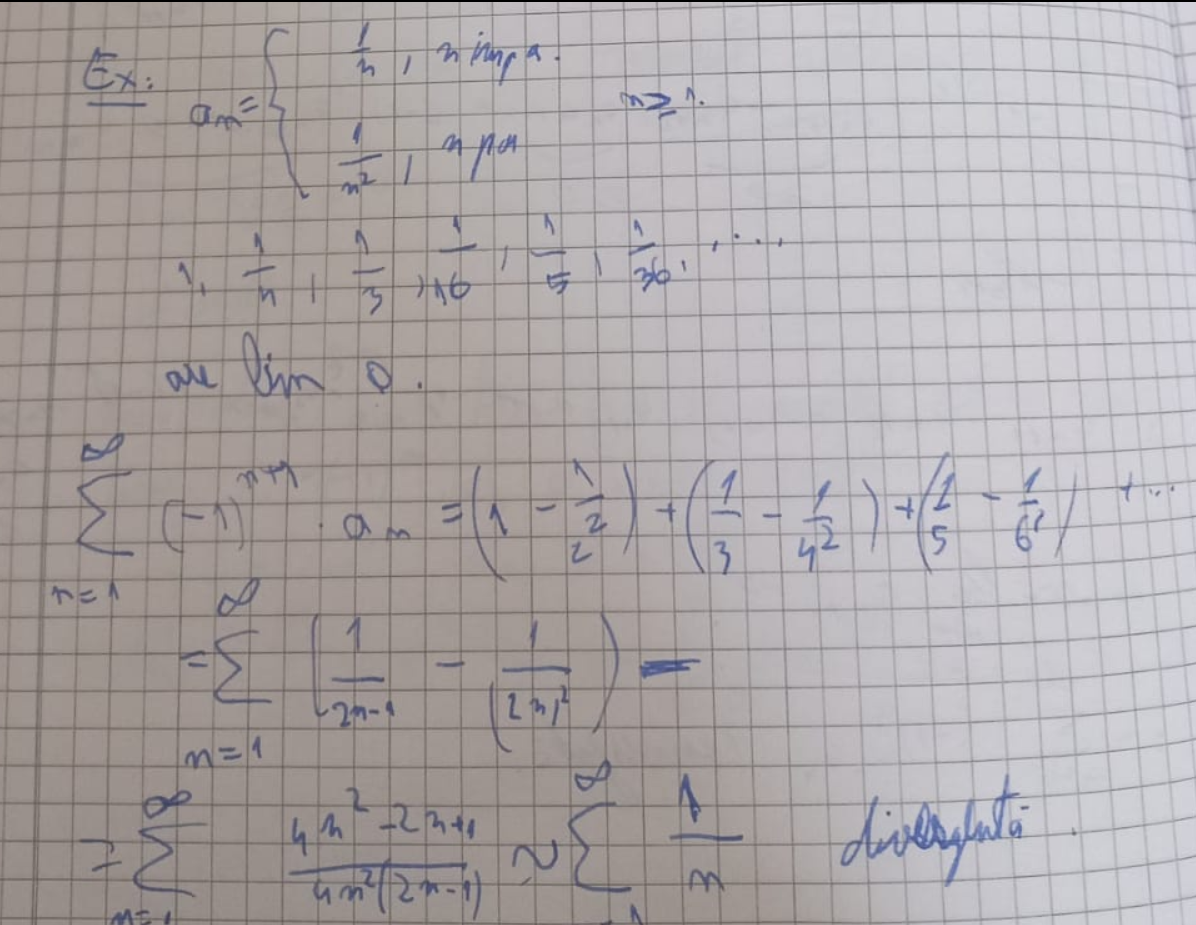 Ex: aₙ = { 1/n, n impa.
1/n², n par
n ≥ 1.
1, 1/4, 1/3, 1/16, 1/5, 1/36, ...,
are lim 0.
∞ ∑ n=1 (-1)ⁿ⁺¹ · aₙ = (1 - 1/2²) + (1/3 - 1/4²) + (1/5 - 1/6²) + ...
= ∞ ∑ n=1 (1/(2n-1) - 1/(2n)²) =
= ∞ ∑ n=1 (4n² - 2n + 1)/(4n²(2n-1)) ~ ∞ ∑ 1/n divergentă.